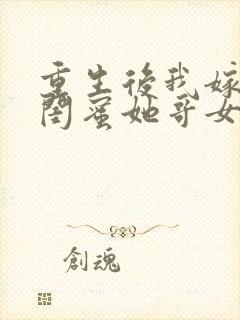 重生後我嫁
閨蜜她哥女
創魂